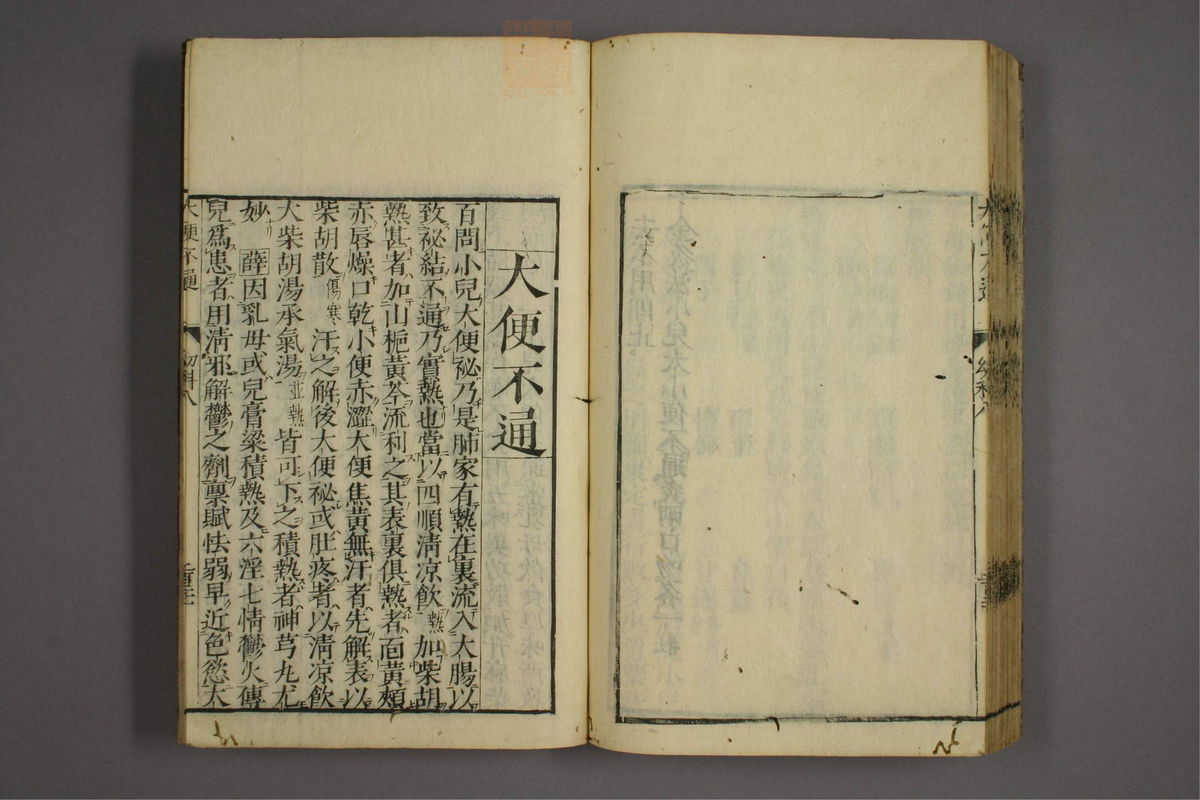 大便不通
百問小兒大便祕乃是肺家有熱在裏流入大腸以
致祕結不通乃實熱也當以四順清凉飲熱加柴胡
熱甚者加山梔黃芩流利之其表裏俱熱者面黃頰
赤唇燥口乾小便赤澀大便焦黃無汗者先解表以
柴胡散傷寒汗之解後大便祕或肚疼者以清凉飲
大柴胡湯承氣湯並熱皆可下之積熱者神芎丸尤
妙薛因乳母或兒膏粱積熱及六淫七情鬱火傳
兒爲患者用清邪解鬱之劑稟賦怯弱早近色慾大
大便不通
幼科八